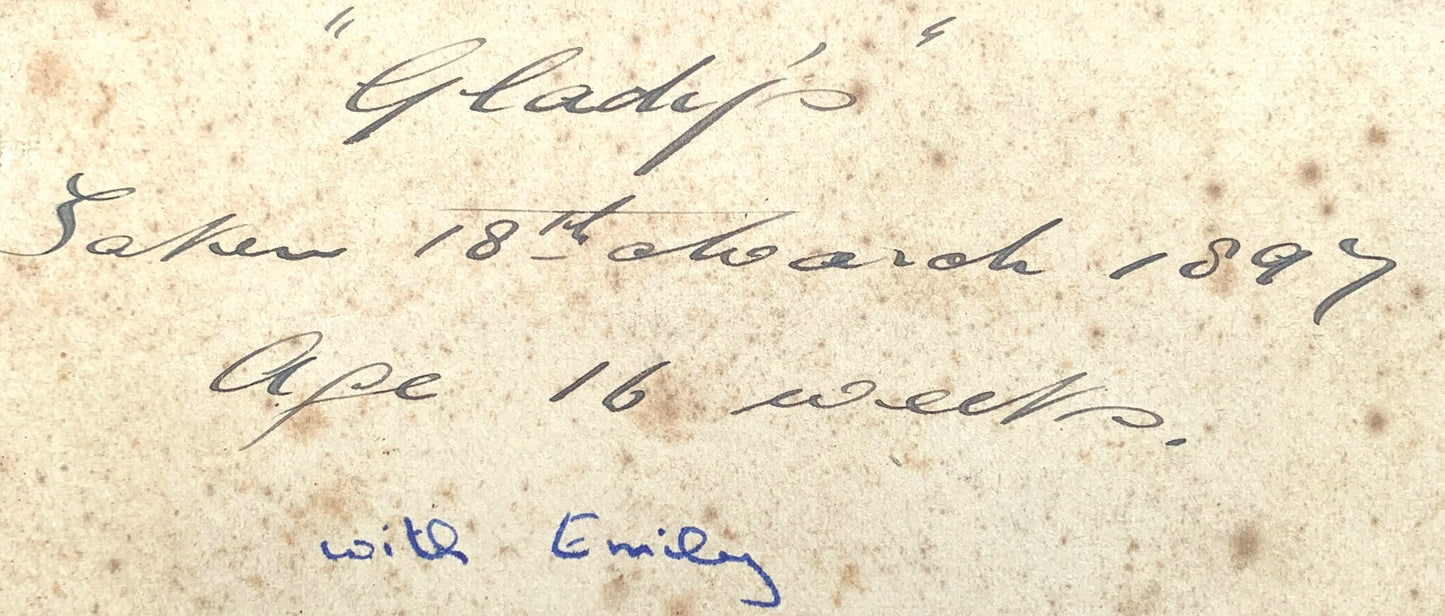 "Gladys"
Taken 18th March 1897
Age 16 weeks.
with Emily